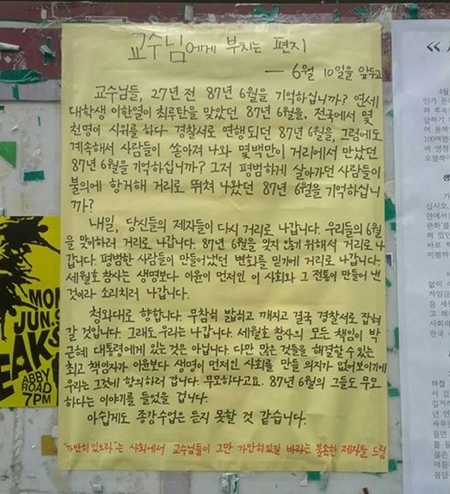 교수님에게 부치는 편지
— 6월 10일을 앞두고
교수님들, 27년 전 87년 6월을 기억하십니까? 연세
대학생 이한열이 최루탄을 맞았던 87년 6월을, 전국에서 몇
천명이 시위를 하다 경찰서로 연행되던 87년 6월을, 그럼에도
계속해서 사람들이 쏟아져 나와 몇백만이 거리에서 만났던
87년 6월을 기억하십니까? 그저 평범하게 살아가던 사람들이
불의에 항거해 거리로 뛰쳐 나왔던 87년 6월을 기억하십니
까?
내일, 당신들의 제자들이 다시 거리로 나갑니다. 우리들의 6월
을 맞이하러 거리로 나갑니다. 87년 6월을 잊지 않기 위해서 거리로 나
갑니다. 평범한 사람들이 만들어냈던 변화를 믿기에 거리로 나갑니다.
세월호 참사는 생명보다 이윤이 먼저인 이 사회와 그 전통이 만들어 낸
것이라 소리치러 나갑니다.
청와대로 향합니다. 무참히 밟히고 깨지고 결국 경찰서로 잡혀
갈 것입니다. 그래도 우리는 나갑니다. 세월호 참사의 모든 책임이 박
근혜 대통령에게 있는 것은 아닙니다. 다만 많은 것들을 해결할 수 있는
최고 책임자가 이윤보다 생명이 먼저인 사회를 만들 의지가 없어보이기에
우리는 그것에 항의하러 갑니다. 무모하다고요. 87년 6월의 그들도 무모
하다는 이야기를 들었을 겁니다.
아쉽게도 종강수업은 듣지 못할 것 같습니다.
"가만히 있으라"는 사회에서 교수님들이 그만 가만히있길 바라는 불손한 제자들 드림
MON
JUN.9
EAKS
ABBY
ROAD
7PM